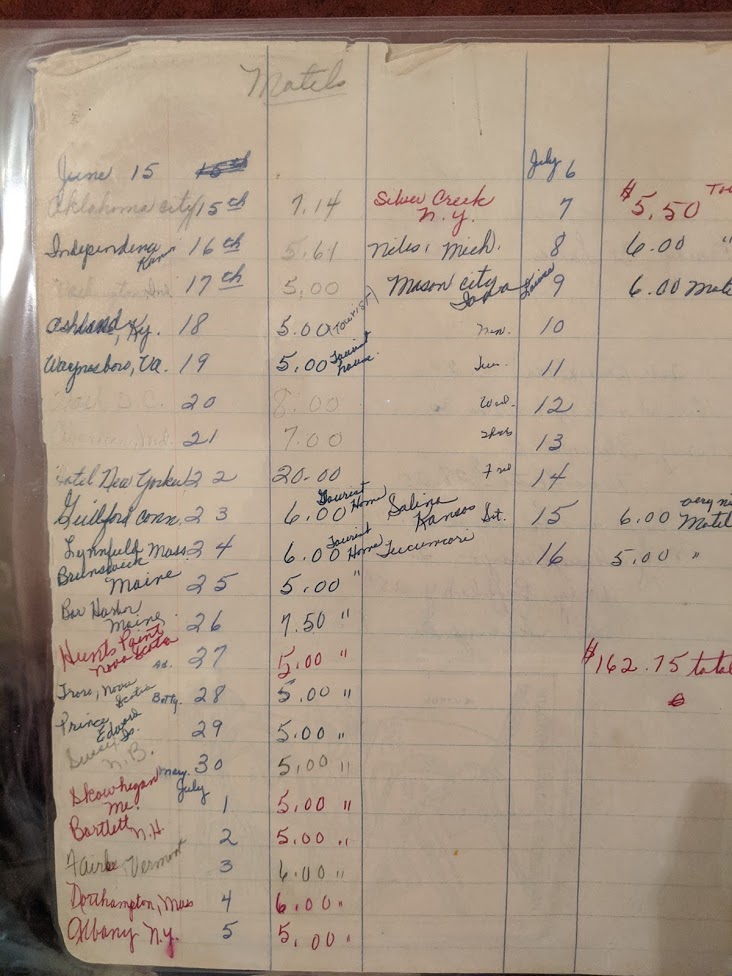 Motels
June 15 15th
Oklahoma city 15th 7.14
Independence Kan 16th 5.61
Washington Ind. 17th 5.00
Ashland, Ky. 18 5.00 (Tourist)
Waynesboro, Va. 19 5.00 Tourist house.
D.C. 20 8.00
21 7.00
Hotel New Yorker 22 20.00
Guilford Conn. 23 6.00 Tourist Home
Lynnfield Mass 24 6.00 Tourist Home
Brunswick Maine 25 5.00 "
Bar Harbor Maine 26 7.50 "
Hunts Point Nova Scotia 27 5.00 "
Truro, Nova Scotia Betty. 28 5.00 "
Prince Edward Is. 29 5.00 "
N.B. Mary. 30 5.00 "
July
Skowhegan Me. 1 5.00 "
Bartlett N.H. 2 5.00 "
Vermont 3 6.00 "
Northampton, Mass 4 6.00 "
Albany N.Y. 5 5.00 "
July 6
Silver Creek N.Y. 7 $5.50 Tou
Niles, Mich. 8 6.00 "
Mason city Iowa 9 6.00 Mote
Mon. 10
Tues. 11
Wed. 12
Thurs 13
Fri 14
Salina Kansas Sat. 15 6.00 very ni Motel
Tucumcari 16 5.00 "
$162.75 total